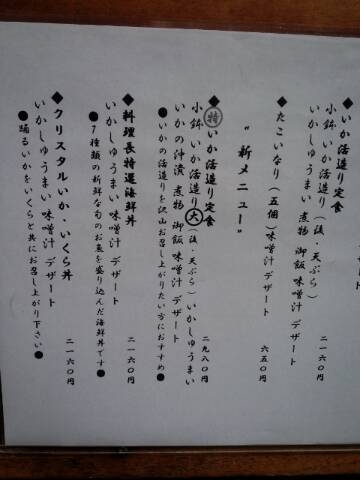 ◆いか活造り定食
小鉢 いか活造り(後・天ぷら)
いかしゅうまい 煮物 御飯 味噌汁 デザート
二一六〇円
◆たこいなり(五個)味噌汁 デザート
六五〇円
"新メニュー"
◆特いか活造り定食
小鉢 いか活造り大(後・天ぷら)いかしゅうまい
いかの汁漬 煮物 御飯 味噌汁 デザート
二九八〇円
●いかの活造りを沢山お召し上がりたい方におすすめ●
◆料理長特選海鮮丼
いかしゅうまい 味噌汁 デザート
二一六〇円
●7種類の新鮮な旬のお魚を盛り込んだ海鮮丼です●
◆クリスタルいか・いくら丼
いかしゅうまい 味噌汁 デザート
二一六〇円
●踊るいかをいくらと共にお召し上がり下さい●